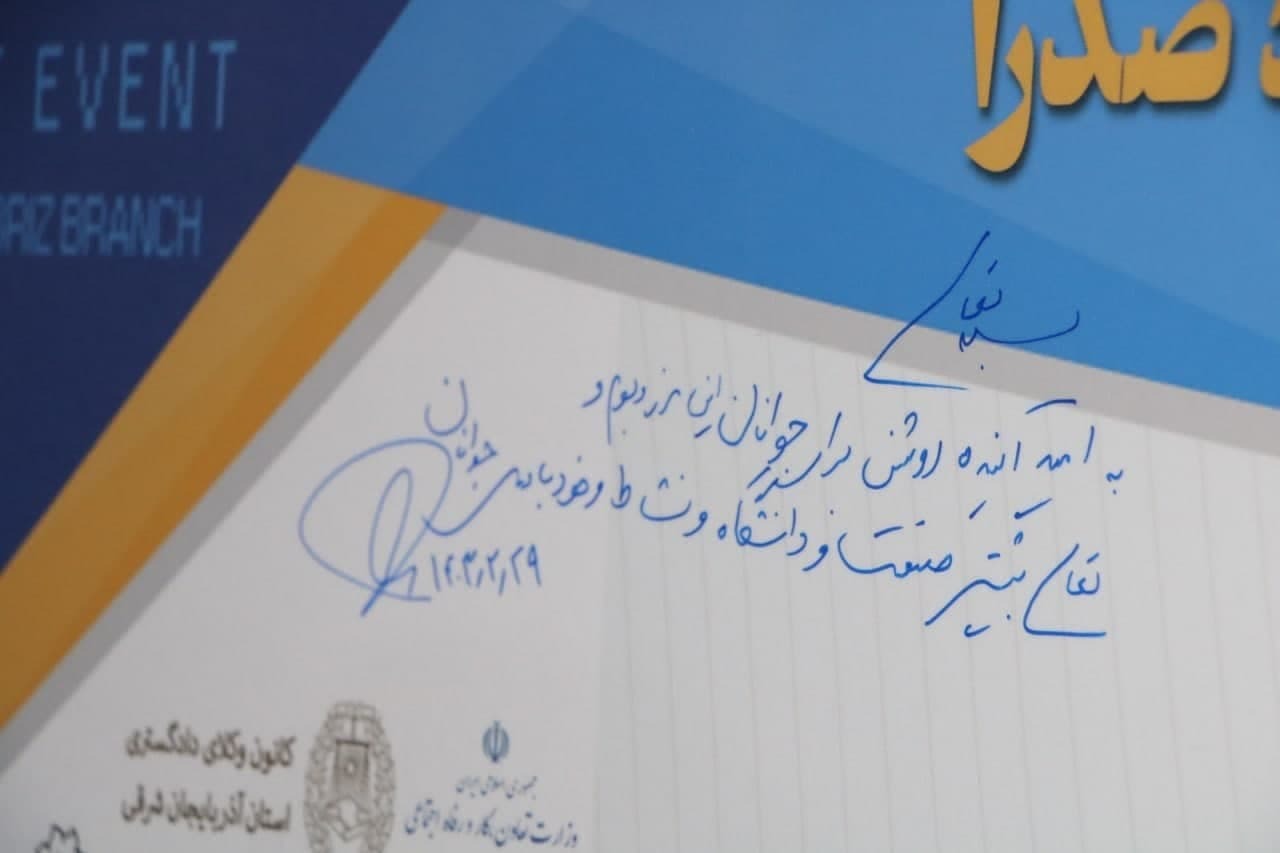 EVENT
RIZ BRANCH
صدرا
بسمه تعالی
به امید آینده روشن برای جوانان این مرز و بوم و
تعالی بیشتر صنعت و دانشگاه و نشاط و خودباوری جوانان
۱۴۰۳/۲/۲۹
جمهوری اسلامی ایران
وزارت تعاون، کار و رفاه اجتماعی
کانون وکلای دادگستری
استان آذربایجان شرقی